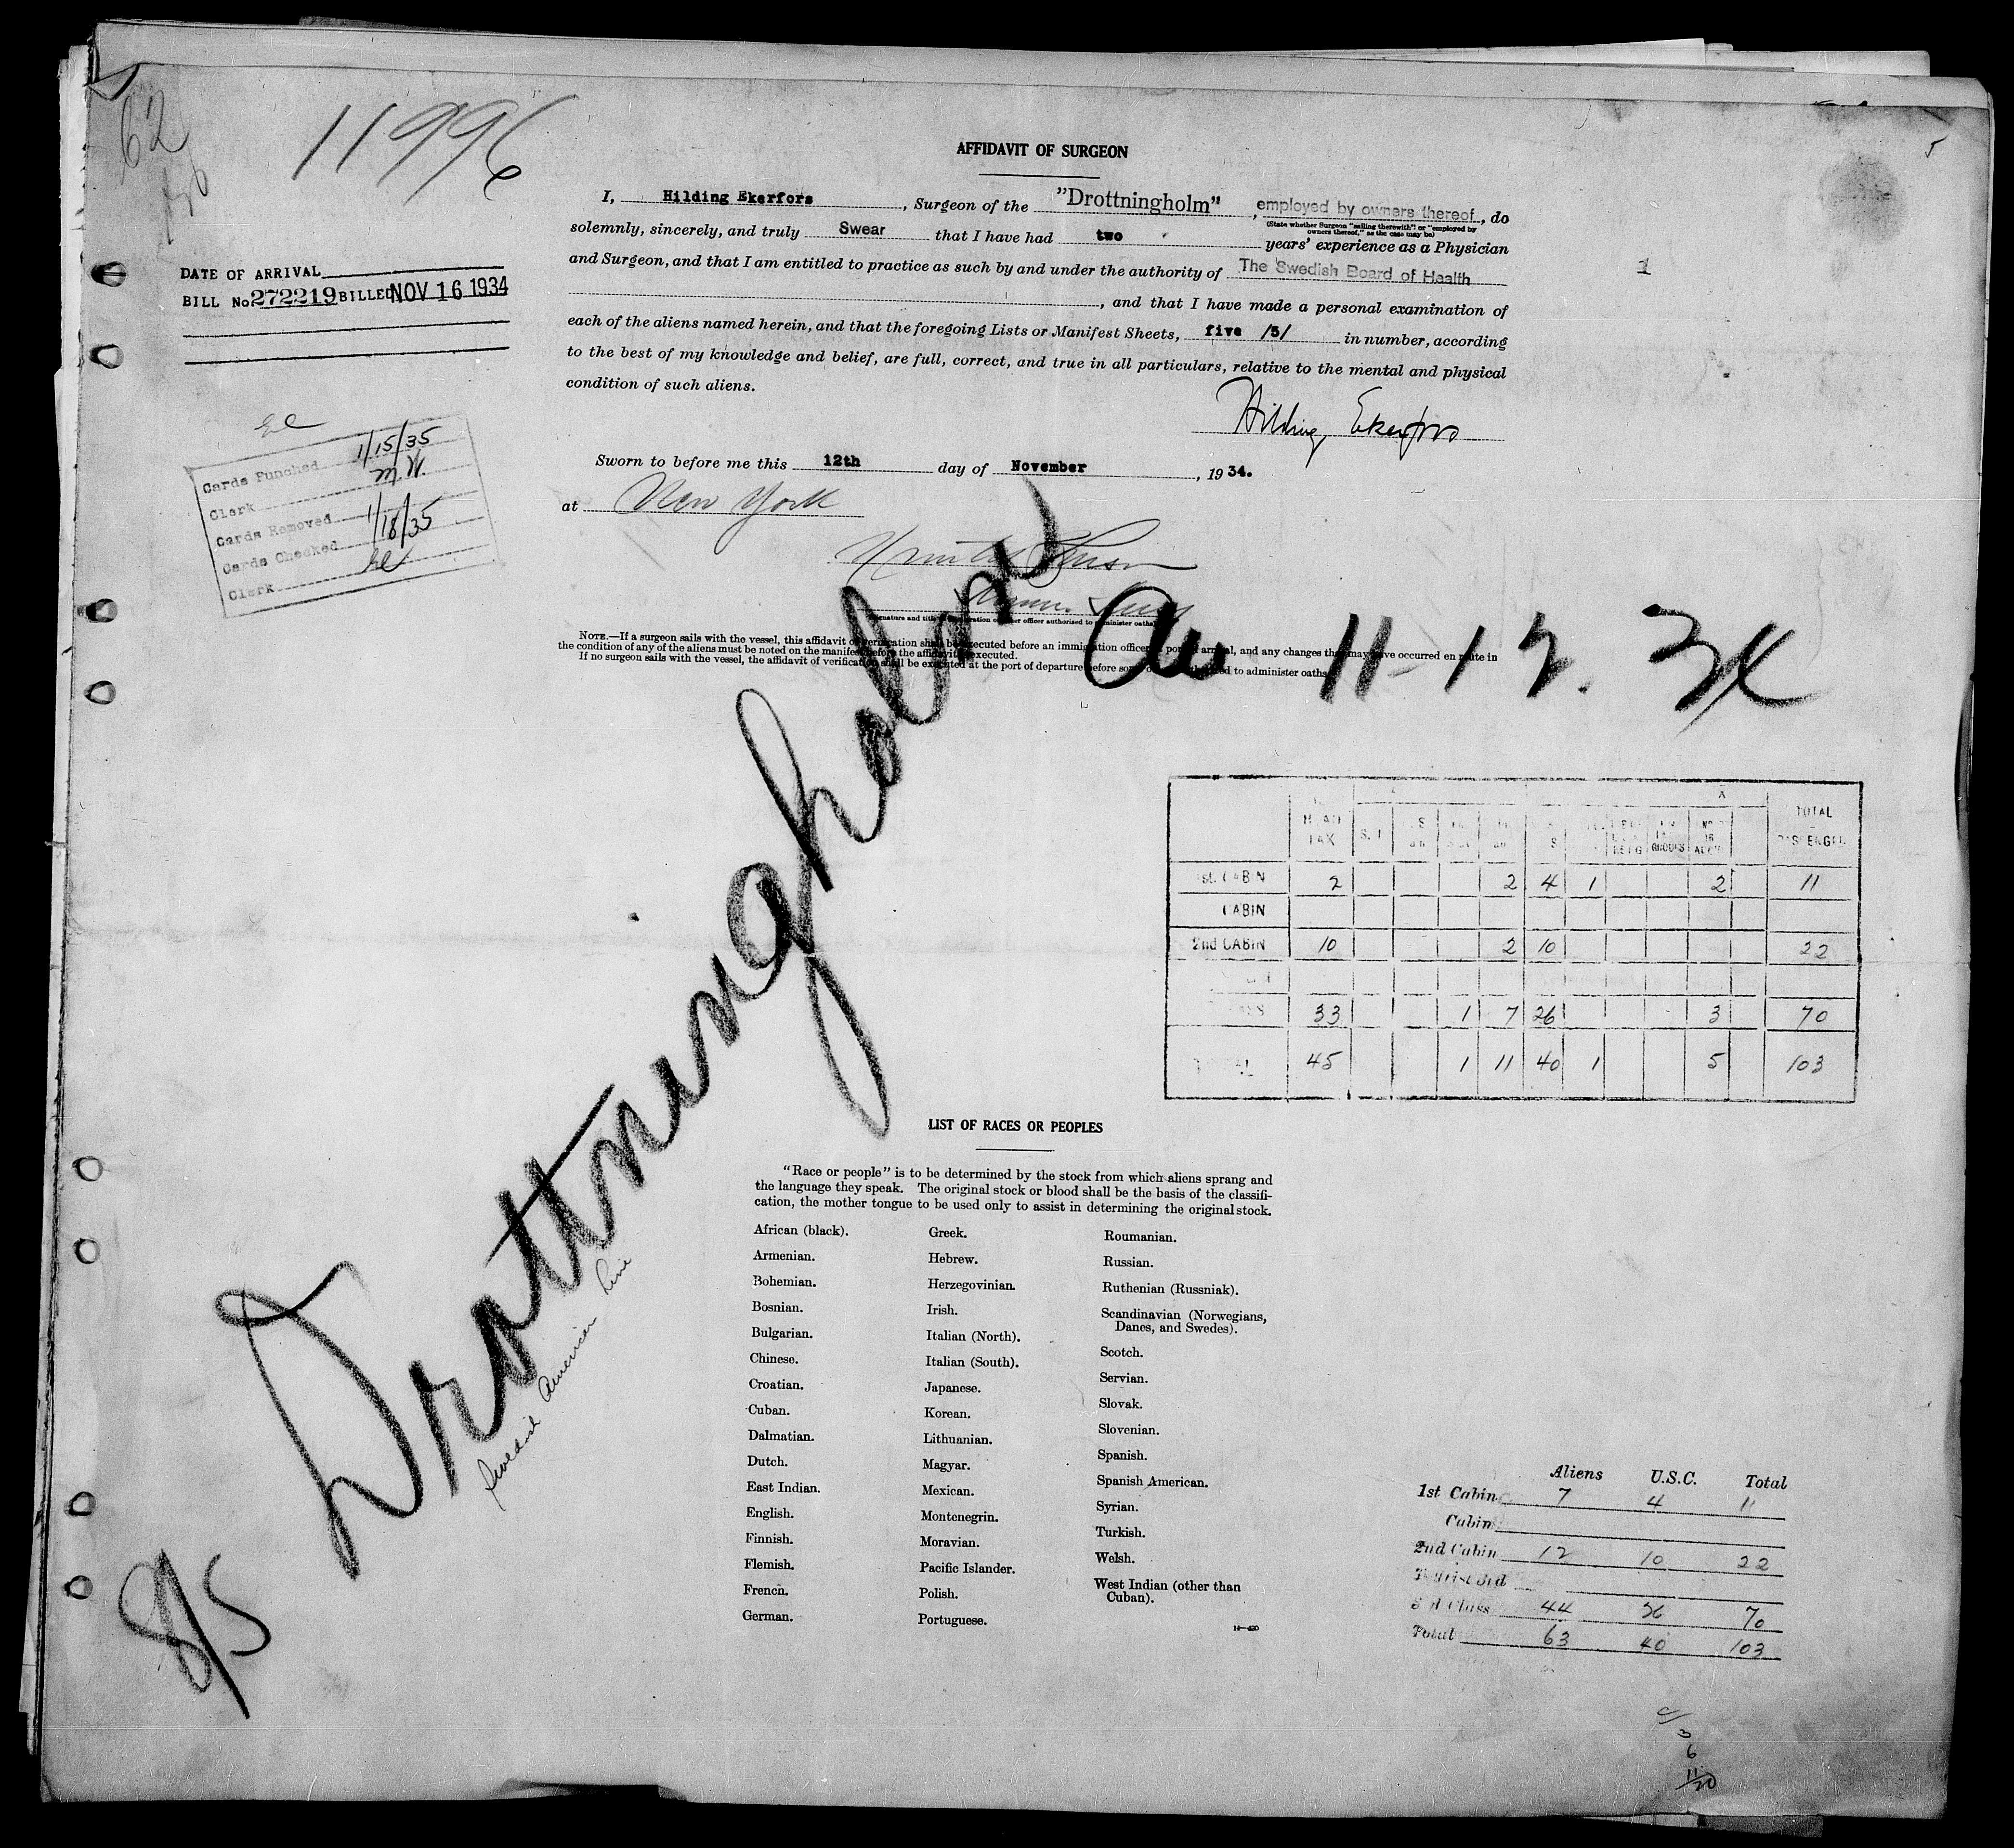 62
11996
5
AFFIDAVIT OF SURGEON
I, Hilding Ekerfors, Surgeon of the "Drottningholm", employed by owners thereof, do
(State whether Surgeon "sailing therewith" or "employed by
owners thereof," as the case may be)
solemnly, sincerely, and truly Swear that I have had two years' experience as a Physician
and Surgeon, and that I am entitled to practice as such by and under the authority of The Swedish Board of Health
, and that I have made a personal examination of
each of the aliens named herein, and that the foregoing Lists or Manifest Sheets, five /5/ in number, according
to the best of my knowledge and belief, are full, correct, and true in all particulars, relative to the mental and physical
condition of such aliens.
Hilding Ekerfors
1
DATE OF ARRIVAL
BILL No 272219 BILLED NOV 16 1934
Cards Punched 1/15/35
Clerk M.W.
Cards Removed
Cards Checked 1/18/35
Clerk
Sworn to before me this 12th day of November, 1934.
at New York
NOTE.—If a surgeon sails with the vessel, this affidavit of verification shall be executed before an immigration officer port arrival, and any changes that may have occurred en route in
the condition of any of the aliens must be noted on the manifest before the affidavit is executed.
If no surgeon sails with the vessel, the affidavit of verification shall be executed at the port of departure before to administer oaths
11-12.34
Drottningholm
Swedish American Line
S/S
HEAD TAX TOTAL PASSENGER
1st. CABIN 2 2 4 1 2 11
CABIN
2nd CABIN 10 2 10 22
33 1 7 26 3 70
45 1 11 40 1 5 103
LIST OF RACES OR PEOPLES
"Race or people" is to be determined by the stock from which aliens sprang and
the language they speak. The original stock or blood shall be the basis of the classifi-
cation, the mother tongue to be used only to assist in determining the original stock.
African (black).
Armenian.
Bohemian.
Bosnian.
Bulgarian.
Chinese.
Croatian.
Cuban.
Dalmatian.
Dutch.
East Indian.
English.
Finnish.
Flemish.
French.
German.
Greek.
Hebrew.
Herzegovinian.
Irish.
Italian (North).
Italian (South).
Japanese.
Korean.
Lithuanian.
Magyar.
Mexican.
Montenegrin.
Moravian.
Pacific Islander.
Polish.
Portuguese.
Roumanian.
Russian.
Ruthenian (Russniak).
Scandinavian (Norwegians,
Danes, and Swedes).
Scotch.
Servian.
Slovak.
Slovenian.
Spanish.
Spanish American.
Syrian.
Turkish.
Welsh.
West Indian (other than
Cuban).
14—420
Aliens U.S.C. Total
1st Cabin 7 4 11
Cabin
2nd Cabin 12 10 22
Tourist 3rd
3rd Class 44 26 70
Total 63 40 103
3
6
11
20